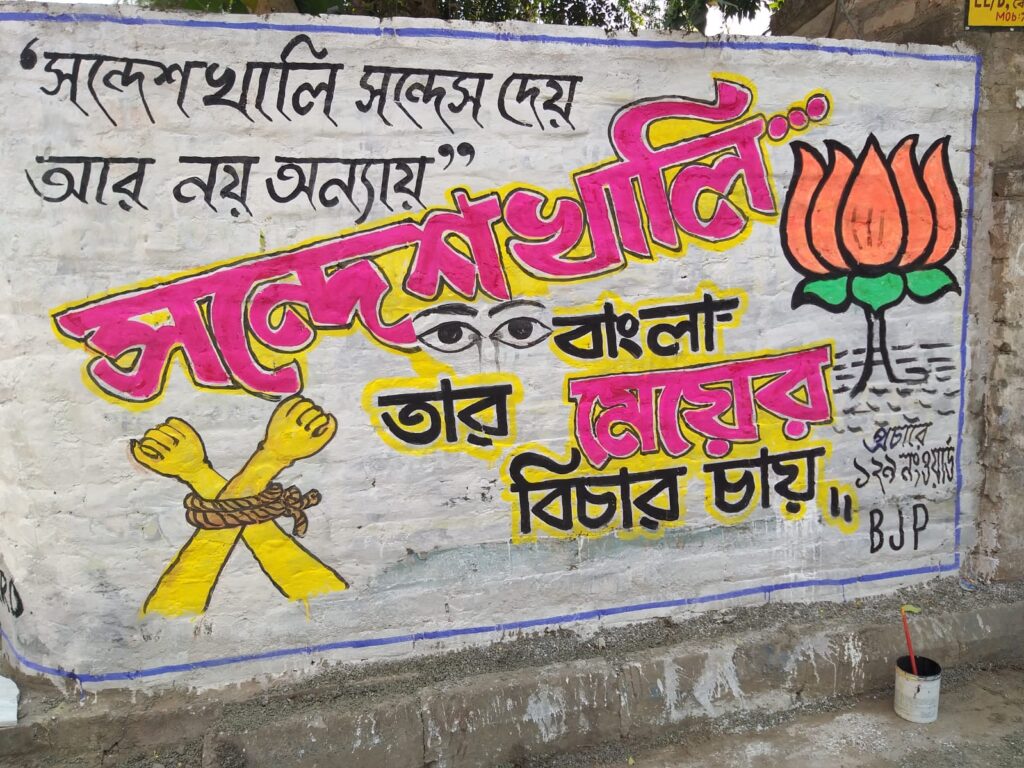 ‘সন্দেশখালি সন্দেস দেয়
আর নয় অন্যায়”
সন্দেশখালি...
বাংলা
তার মেয়ের
বিচার চায়॥
প্রচারে
১২৯ নং ওয়ার্ড
BJP